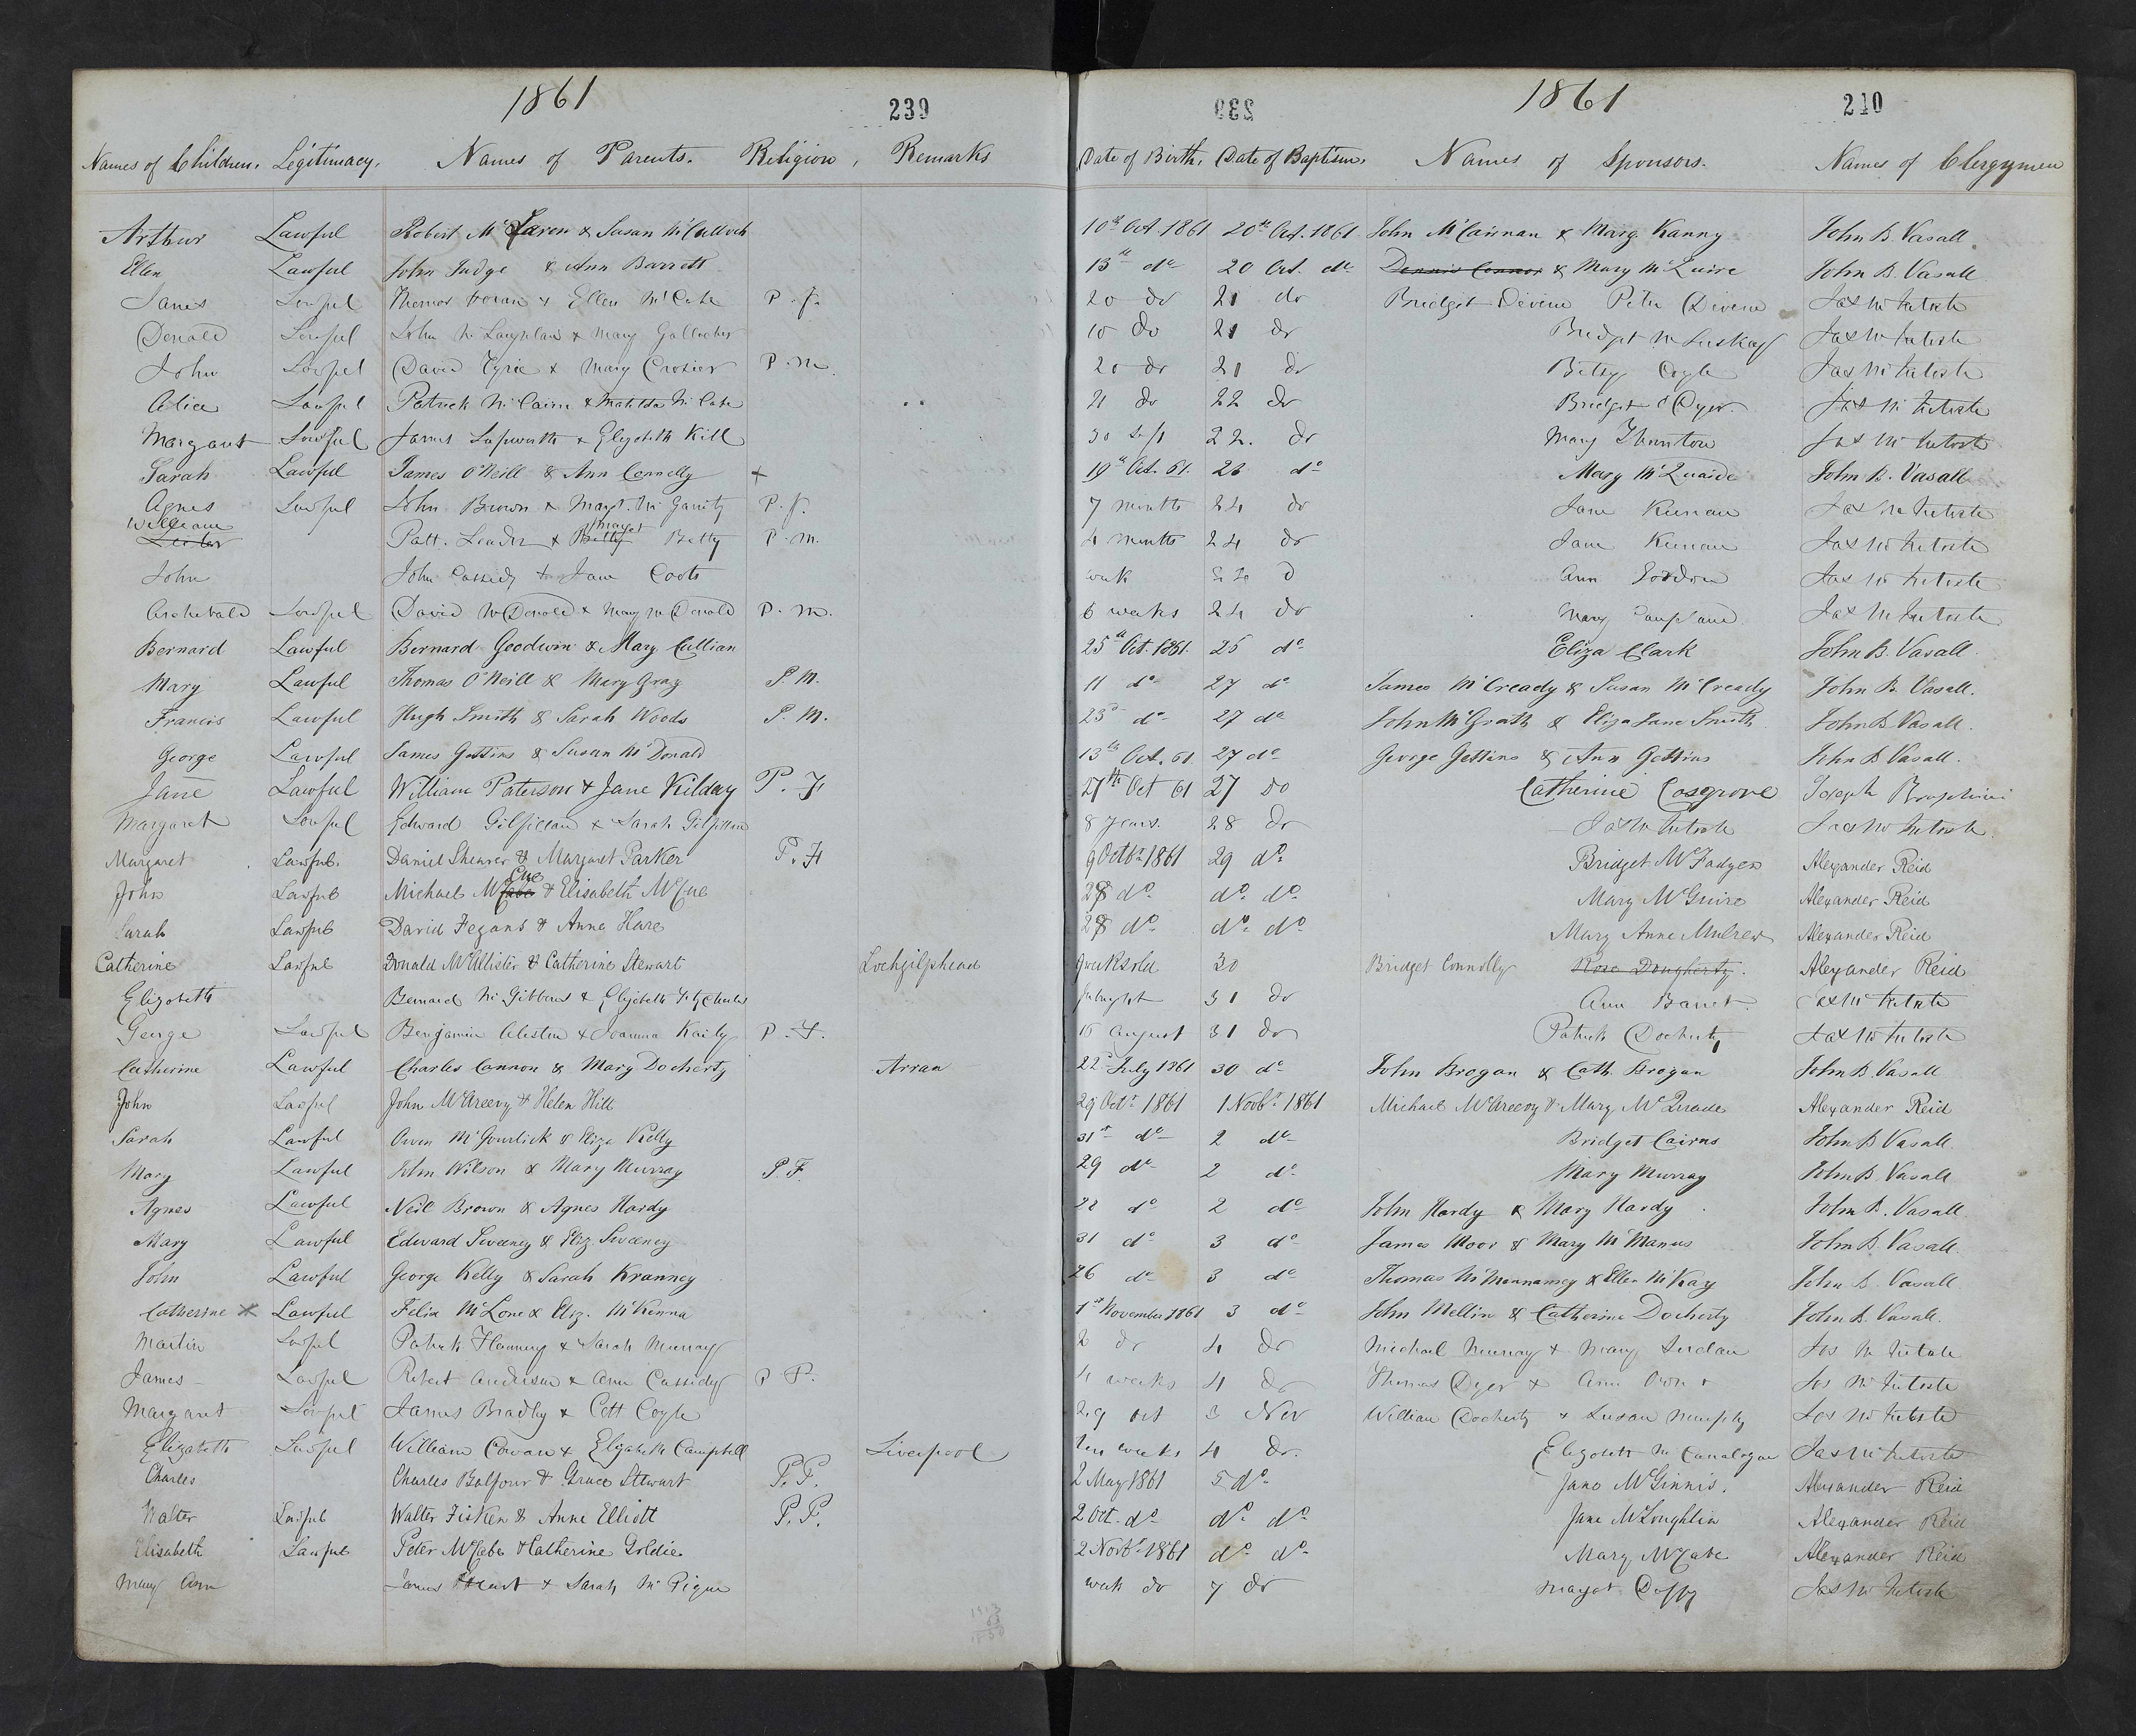 1861 239
Names of Children. Legitimacy. Names of Parents. Religion. Remarks
Arthur Lawful Robert McLaren & Susan McCulloch
Ellen Lawful John Judge & Ann Barrett
James Lawful Thomas & Ellen McCabe P. F.
Donald Lawful John & Mary Gallocher
John Lawful David Tyrie & Mary Crosier P. M.
Alice Lawful Patrick McCairn & Matilda McCabe
Margaret Lawful James & Elizabeth Kill
Sarah Lawful James O'Neill & Ann Connelly +
Agnes Lawful John Brown & Margt. McGarrity P. F.
William Patt. Leader & Margt Betty P. M.
John John Cassidy & Jane Coots
Archibald Lawful David McDonald & Mary McDonald P. M.
Bernard Lawful Bernard Goodwin & Mary Cullian
Mary Lawful Thomas O'Neill & Mary Gray P. M.
Francis Lawful Hugh Smith & Sarah Woods P. M.
George Lawful James Gettins & Susan McDonald
Jane Lawful William Paterson & Jane Kilday P. F
Margaret Lawful Edward Gilfillan & Sarah Gilfillan
Margaret Lawful Daniel Shearer & Margaret Parker P. F
John Lawful Michael McCue & Elisabeth McCue
Sarah Lawful David Fegans & Anne Hare
Catherine Lawful Donald McAllister & Catherine Stewart Lochgilphead
Elizabeth Bernard McGibbons & Elizabeth
George Lawful Benjamin & Joanna Kaily P. F.
Catherine Lawful Charles Cannon & Mary Docherty Arran
John Lawful John McAreevy & Helen Hill
Sarah Lawful Owen McGourlick & Eliza Kelly
Mary Lawful John Wilson & Mary Murray P. F.
Agnes Lawful Neil Brown & Agnes Hardy
Mary Lawful Edward Sweeney & Eliz. Sweeney
John Lawful George Kelly & Sarah Kranney
Catherine X Lawful Felix McLone & Eliz. McKenna
Martin Lawful Patrick Flannery & Sarah Murray
James Lawful Robert Anderson & Ann Cassidy P P.
Margaret Lawful James Bradly & Cath Coyle
Elizabeth Lawful William Cowan & Elizabeth Campbell Liverpool
Charles Charles Balfour & Grace Stewart P. P.
Walter Lawful Walter Fisken & Anne Elliott P. P.
Elisabeth Lawful Peter McCabe & Catherine Goldie
Mary Ann James & Sarah
1861 240
Date of Birth. Date of Baptism. Names of Sponsors. Names of Clergymen
10th Oct 1861 20th Oct. 1861 John McCannan & Marg. Kanny John B. Vasall.
13th do 20 Oct. do Dennis Connor & Mary McQuire John B. Vasall
20 do 21 do Bridget Divine Peter Divine Jas McIntosh
10 do 21 do Bridget McLuskay Jas McIntosh
20 do 21 do Betty Coyle Jas McIntosh
21 do 22 do Bridget Dyer. Jas McIntosh
30 Sept 22. do Mary Thornton Jas McIntosh
19th Oct. 61. 23 do Mary McQuaide John B. Vasall
7 months 24 do Jane Keenan Jas McIntosh
4 months 24 do Jane Keenan Jas McIntosh
week 24 d Ann Gordon Jas McIntosh
6 weeks 24 do Mary Jas McIntosh
25th Oct. 1861. 25 do Eliza Clark John B. Vasall
11 do 27 do James McCready & Susan McCready John B. Vasall.
23d do 27 do John McGrath & Eliza Jane Smith John B. Vasall.
13th Oct. 61. 27 do George Gettins & Ann Gettins John B. Vasall.
27th Oct 61 27 do Catherine Cosgrove Joseph
8 years. 28 do Jas McIntosh Jas McIntosh
9 Octbr 1861 29 do Bridget McFadyen Alexander Reid
28 do do do Mary McGuire Alexander Reid
28 do do do Mary Anne Mulrew Alexander Reid
weeks old 30 Bridget Connolly Rose Dougherty. Alexander Reid
fortnight 31 do Ann Barret Jas McIntosh
15 August 31 do Patrick Docherty Jas McIntosh
22d July 1861 30 do John Brogan & Cath. Brogan John B. Vasall
29 Octr 1861 1 Novbr 1861 Michael McAreevy & Mary McQuade Alexander Reid
31st do 2 do Bridget Cairns John B. Vasall.
29 do 2 do Mary Murray John B. Vasall
22 do 2 do John Hardy & Mary Hardy John B. Vasall.
31 do 3 do James Moor & Mary McManus John B. Vasall.
26 do 3 do Thomas McMannamey & Ellen McKay John B. Vasall
1st November 1861 3 do John Mellin & Catherine Docherty John B. Vasall.
2 do 4 do Michael Murray & Mary Jordan Jas McIntosh
4 weeks 4 do Thomas Dyer & Ann Jas McIntosh
29 Oct 3 Nov William Docherty & Susan Murphy Jas McIntosh
ten weeks 4 do. Elizabeth Jas McIntosh
2 May 1861 5 do Jane McGinnis. Alexander Reid
2 Oct. do do do Jane McLoughlin Alexander Reid
2 Novbr 1861 do do Mary McCabe Alexander Reid
week do 7 do Margt Duffy Jas McIntosh